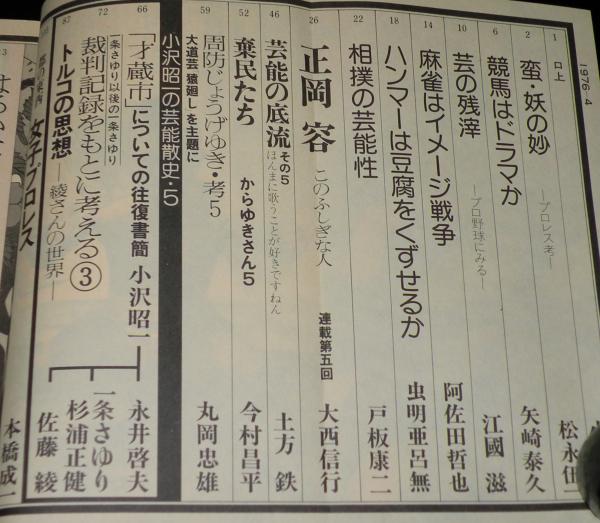 1976・4
1
口上
松永伍一
2
蛮・妖の妙
―プロレス考―
矢崎泰久
6
競馬はドラマか
江國 滋
10
芸の残滓
―プロ野球にみる―
阿佐田哲也
14
麻雀はイメージ戦争
虫明亜呂無
18
ハンマーは豆腐をくずせるか
22
相撲の芸能性
戸板康二
26
正岡 容
このふしぎな人
連載第五回
大西信行
46
芸能の底流 その5
ほんまに歌うことが好きですねん
土方 鉄
52
棄民たち
からゆきさん5
今村昌平
59
周防じょうげゆき・考5
大道芸 猿廻しを主題に
丸岡忠雄
小沢昭一の芸能散史・5
66
「才蔵市」についての往復書簡
小沢昭一
永井啓夫
72
一条さゆり以後の一条さゆり
裁判記録をもとに考える③
一条さゆり
杉浦正健
87
トルコの思想
―綾さんの世界―
佐藤 綾
女子・プロレス
本橋成一